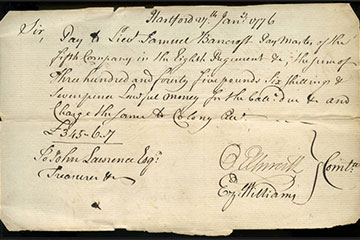 Hartford 17th Janry 1776
Sir,
Pay to Lieut Samuel Bancroft Pay Master of the
fifth Company in the Eighth Regiment &c, the sum of
three hundred and fourty five pounds Six Shillings &
Sevenpence Lawful money In the &c and
Charge the same to Colony Acct
£345-6-7
To John Lawrence Esqr
Treasurer &c
O Ellsworth
Ezl Williams
Comtee